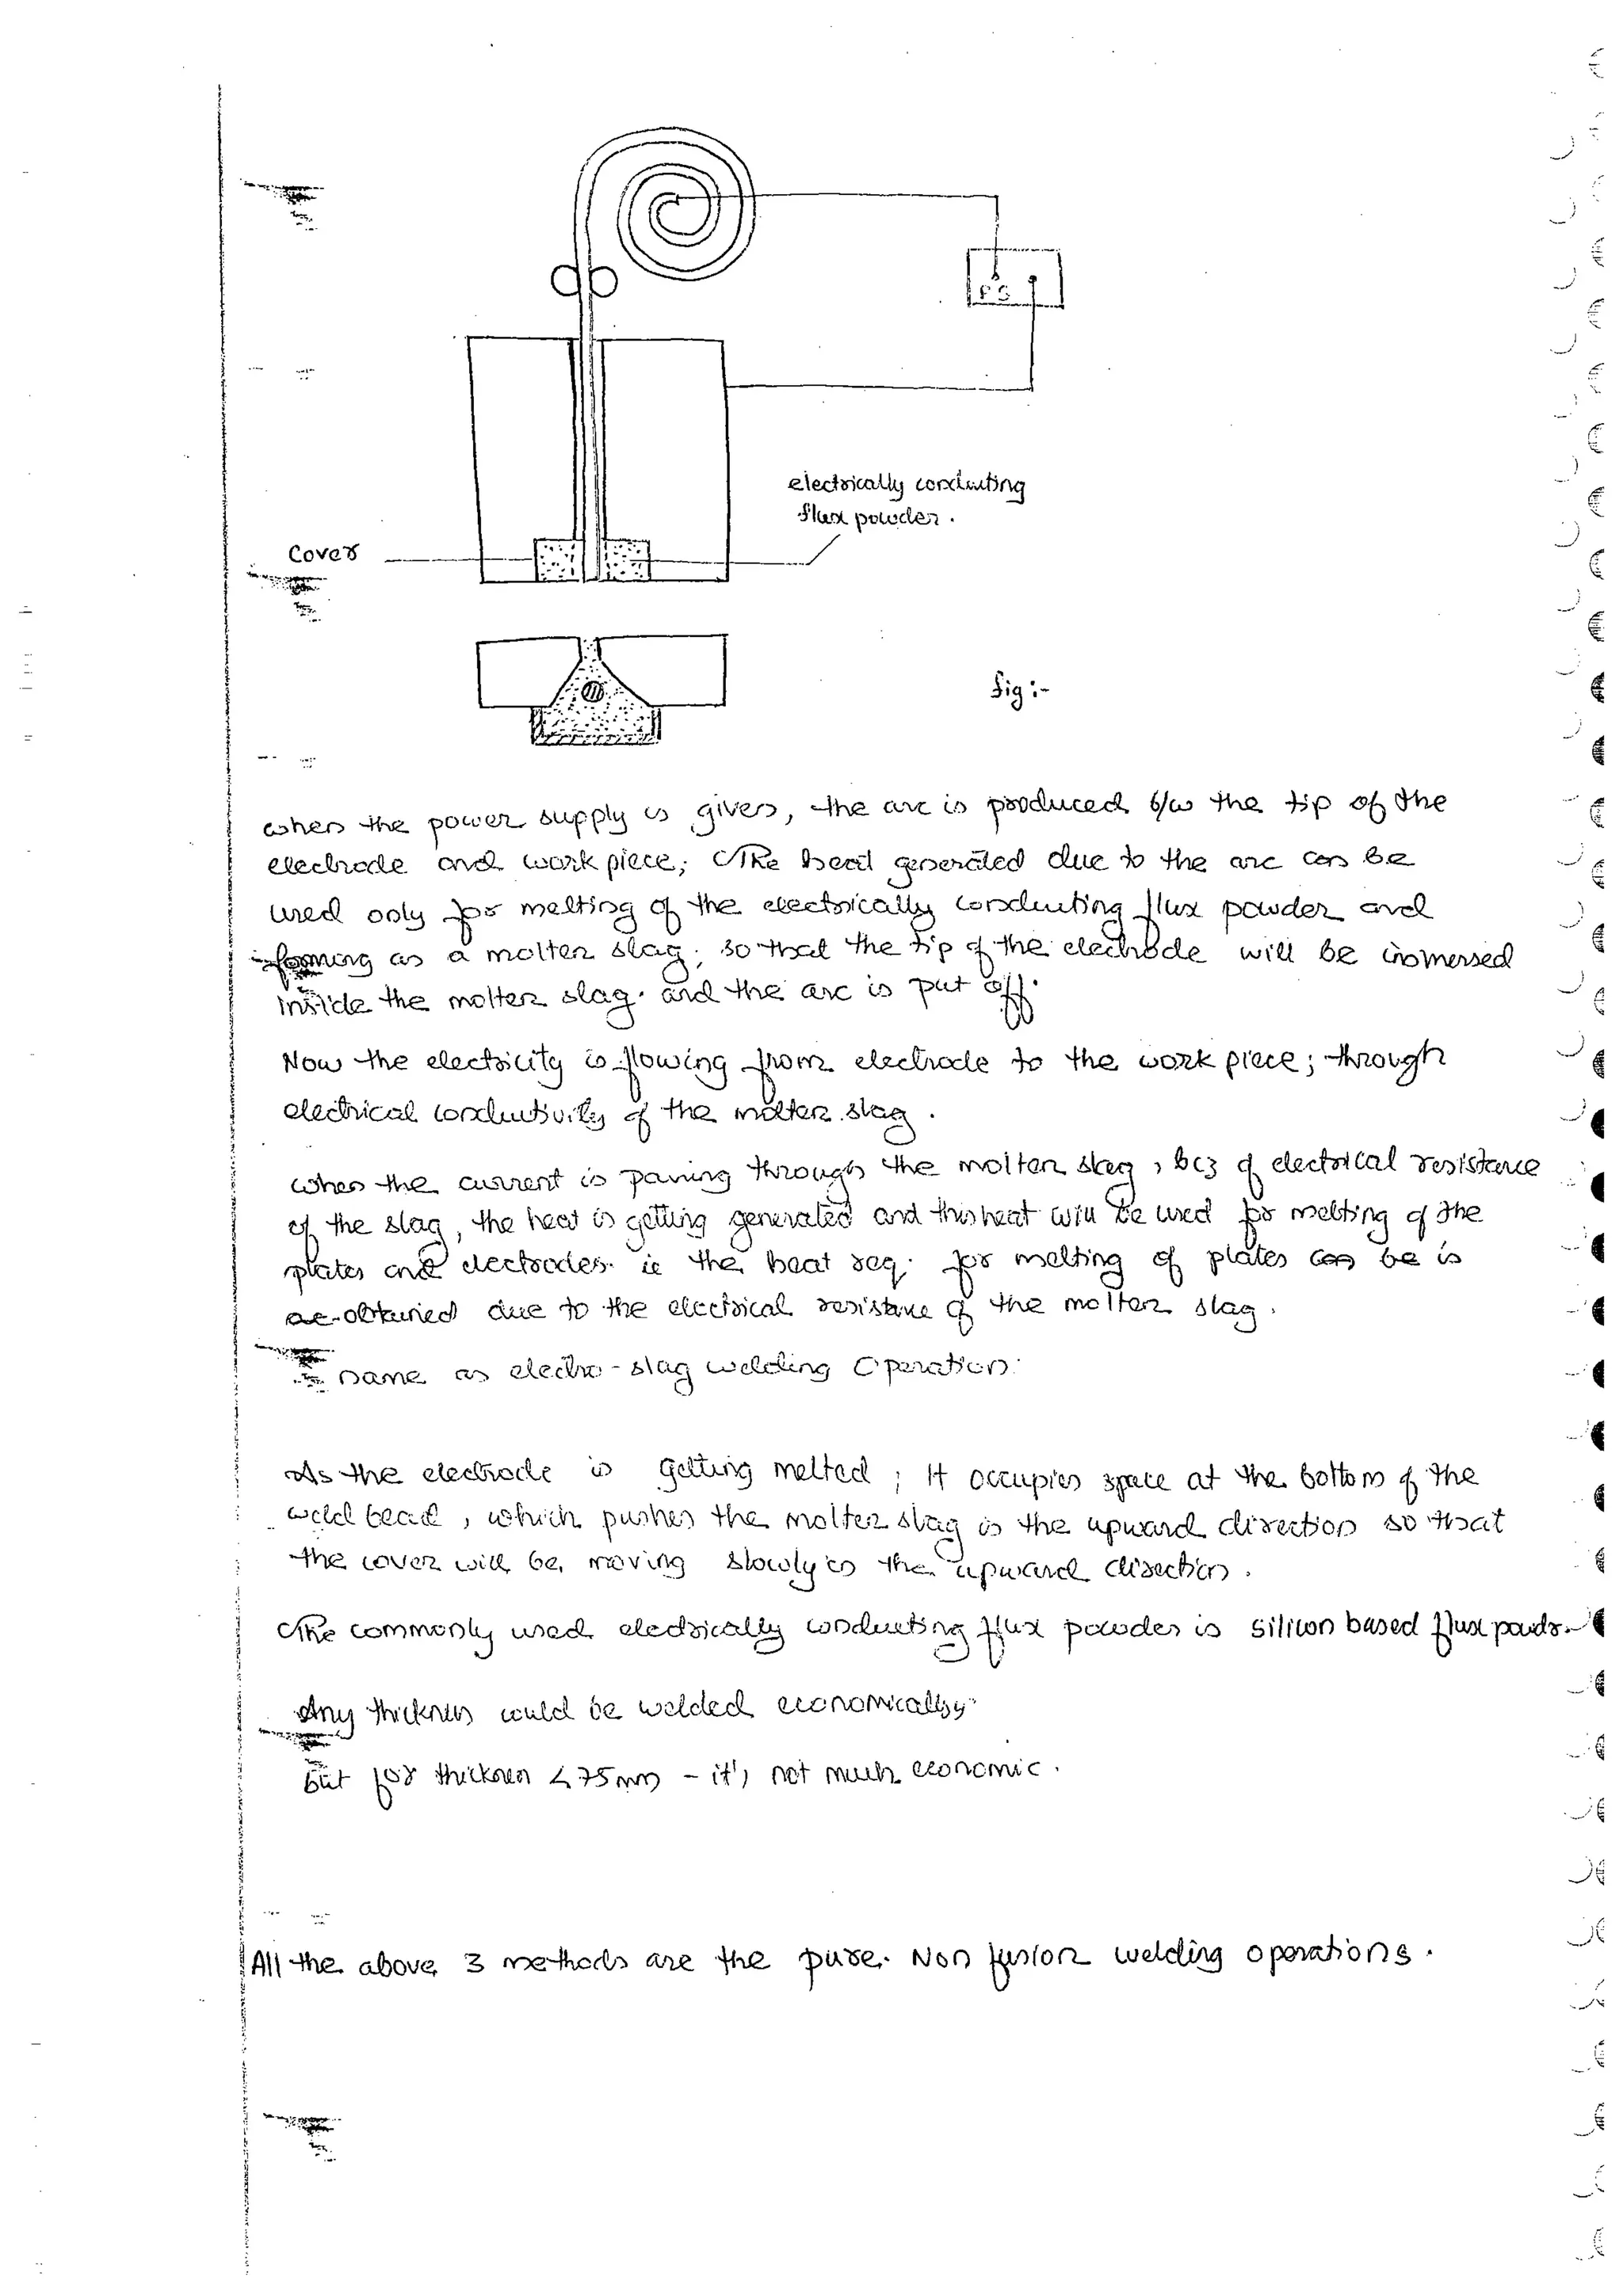 P S
electrically conducting
flux powder .
Cover
fig :-
when the power supply is given, the arc is produced b/w the tip of the
electrode and work piece; The heat generated due to the arc can be
used only for melting of the electrically conducting flux powder and
forming as a molten slag; so that the tip of the electrode will be immersed
inside the molten slag. and the arc is put off.
Now the electricity is flowing from electrode to the work piece; through
electrical conductivity of the molten slag .
when the current is passing through the molten slag, bcz of electrical resistance
of the slag, the heat is getting generated and this heat will be used for melting of the
plates and electrodes. ie the heat req. for melting of plates can be is
obtained due to the electrical resistance of the molten slag.
name as electro-slag welding Operation.
As the electrode is getting melted; it occupies space at the bottom of the
weld bead, which pushes the molten slag in the upward direction so that
the cover will be moving slowly in the upward direction.
The commonly used electrically conducting flux powder is silicon based flux powdr.
Any thickness could be welded economically.
but for thickness < 75mm - it's not much economic.
All the above 3 methods are the pure. Non fusion welding operations.